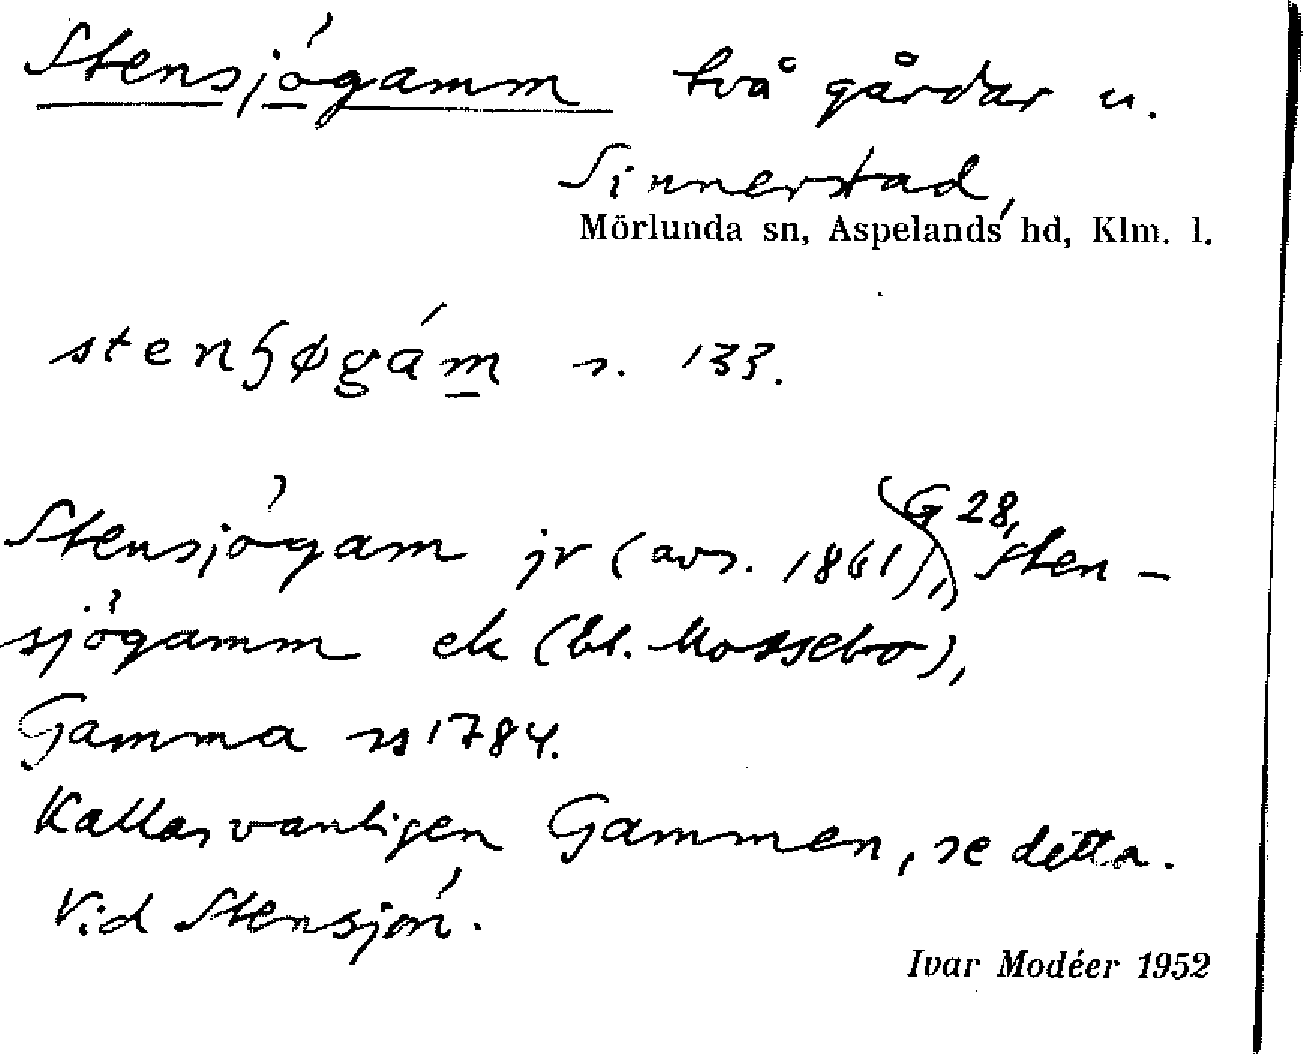 Stensjögamm två gårdar u.
Sinnerstad,
Mörlunda sn, Aspelands hd, Klm. l.
stenʃøgám s. 133.
G 28,
Stensjögam jr (avs. 1861), Sten-
sjögamm ek (bl. Mossebo),
Gamma 1784.
Kallas vanligen Gammen, se detta.
Vid Stensjön.
Ivar Modéer 1952